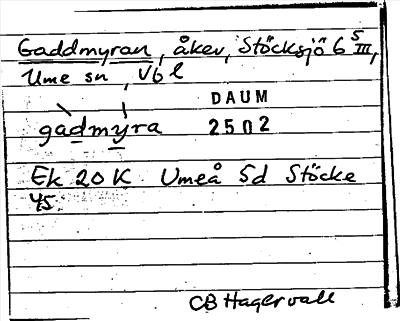 Gaddmyran, åker, Stöcksjö 6 5 III,
Ume sn, Vb l
DAUM
gadmyra 2502
Ek 20 K Umeå 5d Stöcke
45.
CB Hagervall